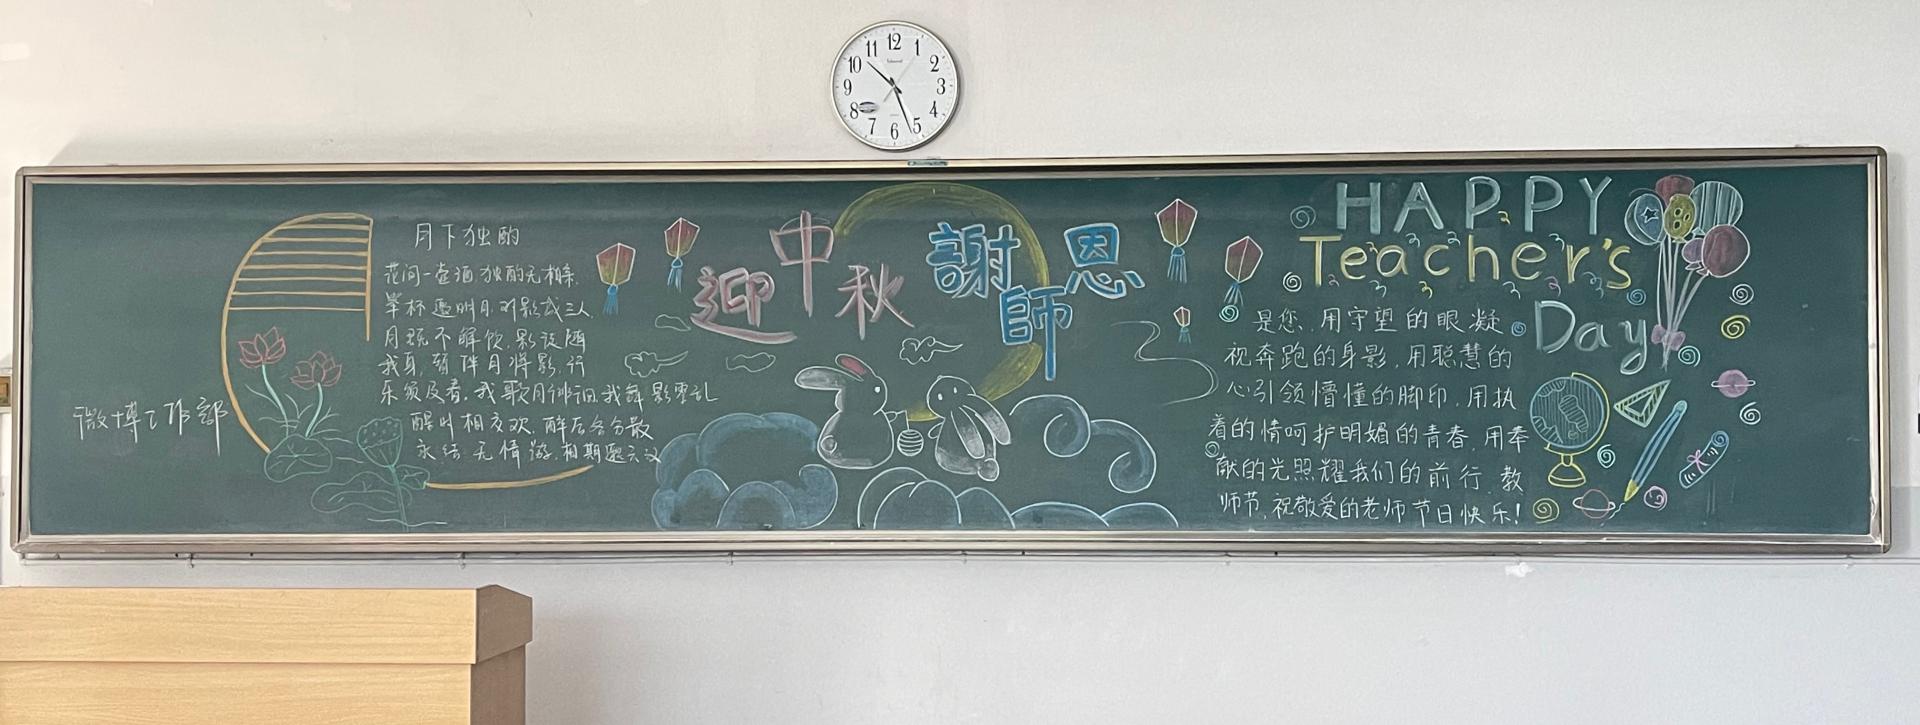 12
1
2
3
4
5
6
7
8
9
10
11
微博工作部
月下独酌
花间一壶酒,独酌无相亲.
举杯邀明月,对影成三人.
月既不解饮,影徒随
我身,暂伴月将影,行
乐须及春.我歌月徘徊我舞影零乱
醒时相交欢.醉后各分散
永结无情游.相期邈云汉
迎中秋
謝師恩
HAPPY
Teacher's
Day
是您,用守望的眼凝
视奔跑的身影,用聪慧的
心引领懵懂的脚印,用执
着的情呵护明媚的青春,用奉
献的光照耀我们的前行.教
师节,祝敬爱的老师节日快乐!